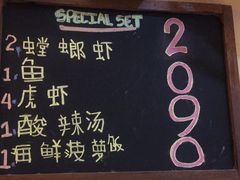 SPECIAL SET
2 螳螂虾
1 鱼
4 虎虾
1 酸辣汤
1 海鲜菠萝饭
2090